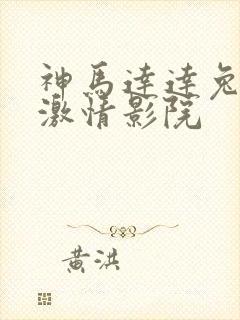 神馬達達兔
激情影院
黄洪